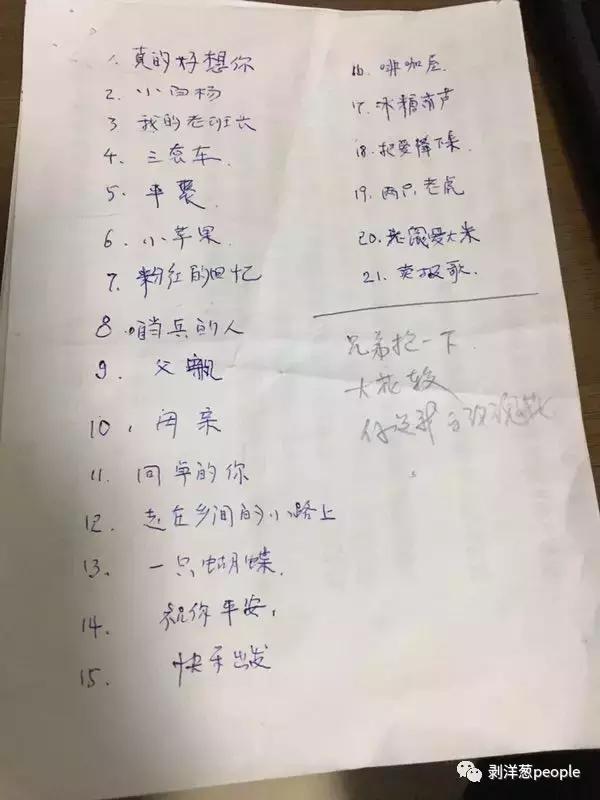 1. 真的好想你
2. 小白杨
3 我的老班长
4. 三套车
5. 平
6. 小苹果
7. 粉红的回忆
8. 哨兵的人
9. 父亲
10. 母亲
11. 同卓的你
12. 走在乡间的小路上
13. 一只蝴蝶
14. 祝你平安
15. 快乐出发
16. 啡咖屋
17. 冰糖有声
18. 把爱
19. 两只老虎
20. 老鼠爱大米
21. 卖报歌
兄弟抱一下
大花轿
你送我
剥洋葱people